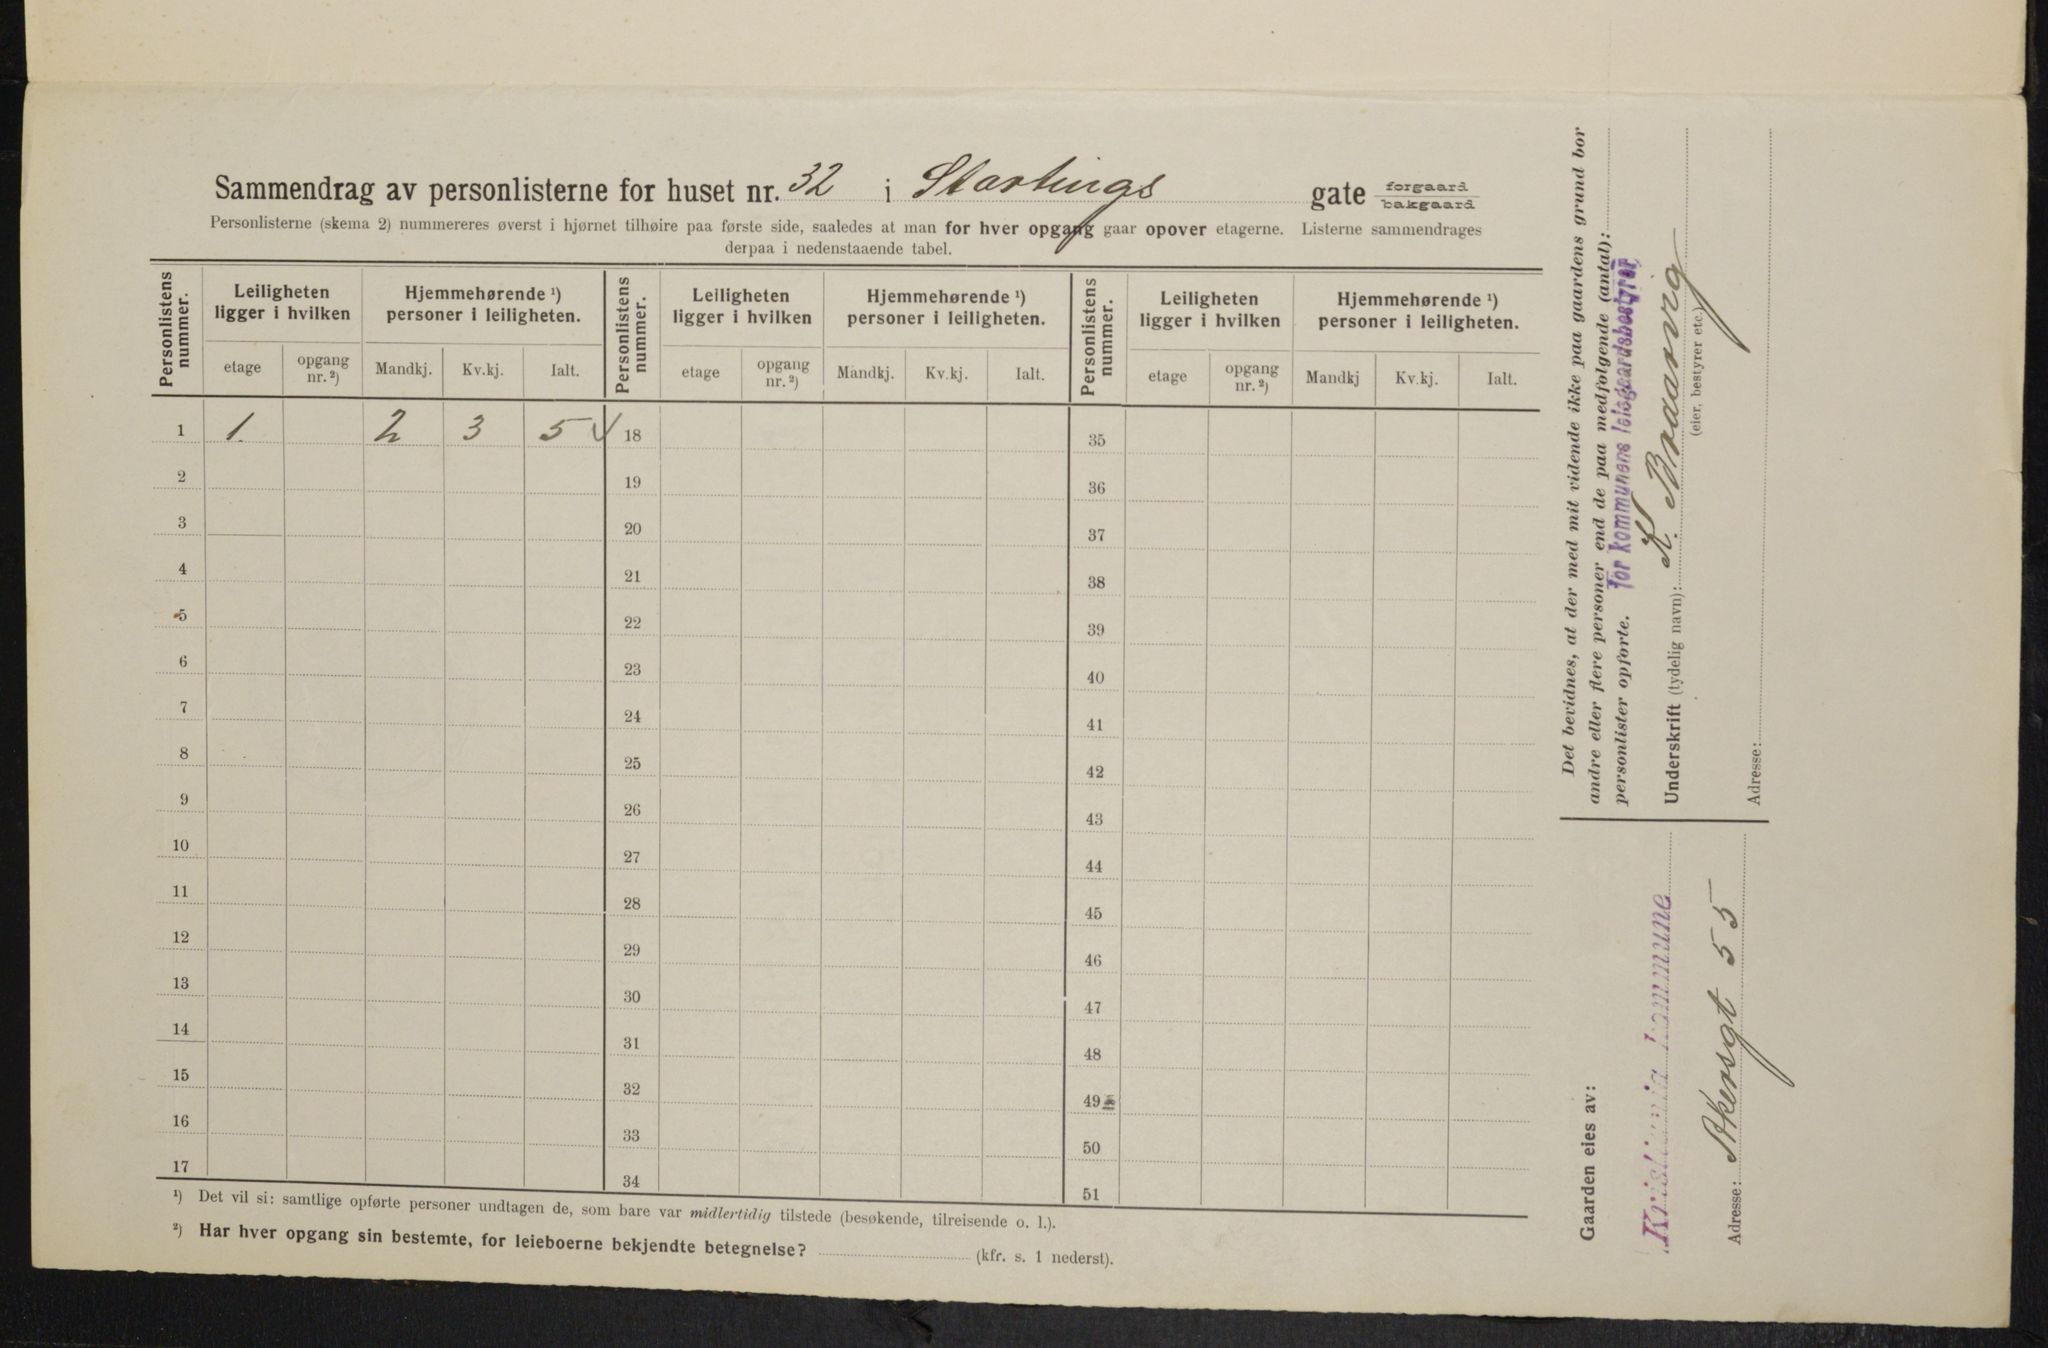 Sammendrag av personlisterne for huset nr. 32 i Stortings gate forgaard bakgaard
Personlisterne (skema 2) nummereres øverst i hjørnet tilhøire paa første side, saaledes at man for hver opgang gaar opover etagerne. Listerne sammendrages
derpaa i nedenstaaende tabel.
Personlistens nummer. Leiligheten ligger i hvilken Hjemmehørende ¹) personer i leiligheten. Personlistens nummer. Leiligheten ligger i hvilken Hjemmehørende ¹) personer i leiligheten. Personlistens nummer. Leiligheten ligger i hvilken Hjemmehørende ¹) personer i leiligheten.
etage opgang nr. ²) Mandkj. Kv.kj. Ialt. etage opgang nr. ²) Mandkj. Kv.kj. Ialt. etage opgang nr. ²) Mandkj Kv.kj. Ialt.
1 1 2 3 5 √ 18 35
2 19 36
3 20 37
4 21 38
5 22 39
6 23 40
7 24 41
8 25 42
9 26 43
10 27 44
11 28 45
12 29 46
13 30 47
14 31 48
15 32 49
16 33 50
17 34 51
¹) Det vil si: samtlige opførte personer undtagen de, som bare var midlertidig tilstede (besøkende, tilreisende o. l.).
²) Har hver opgang sin bestemte, for leieboerne bekjendte betegnelse? (kfr. s. 1 nederst).
Det bevidnes, at der med mit vidende ikke paa gaardens grund bor
andre eller flere personer end de paa medfølgende (antal):
personlister opførte. For kommunens leiegaardsbestyrer,
Underskrift (tydelig navn): K. Braarvig
(eier, bestyrer etc.)
Adresse:
Gaarden eies av:
Kristiania kommune
Adresse: Akersgt 55